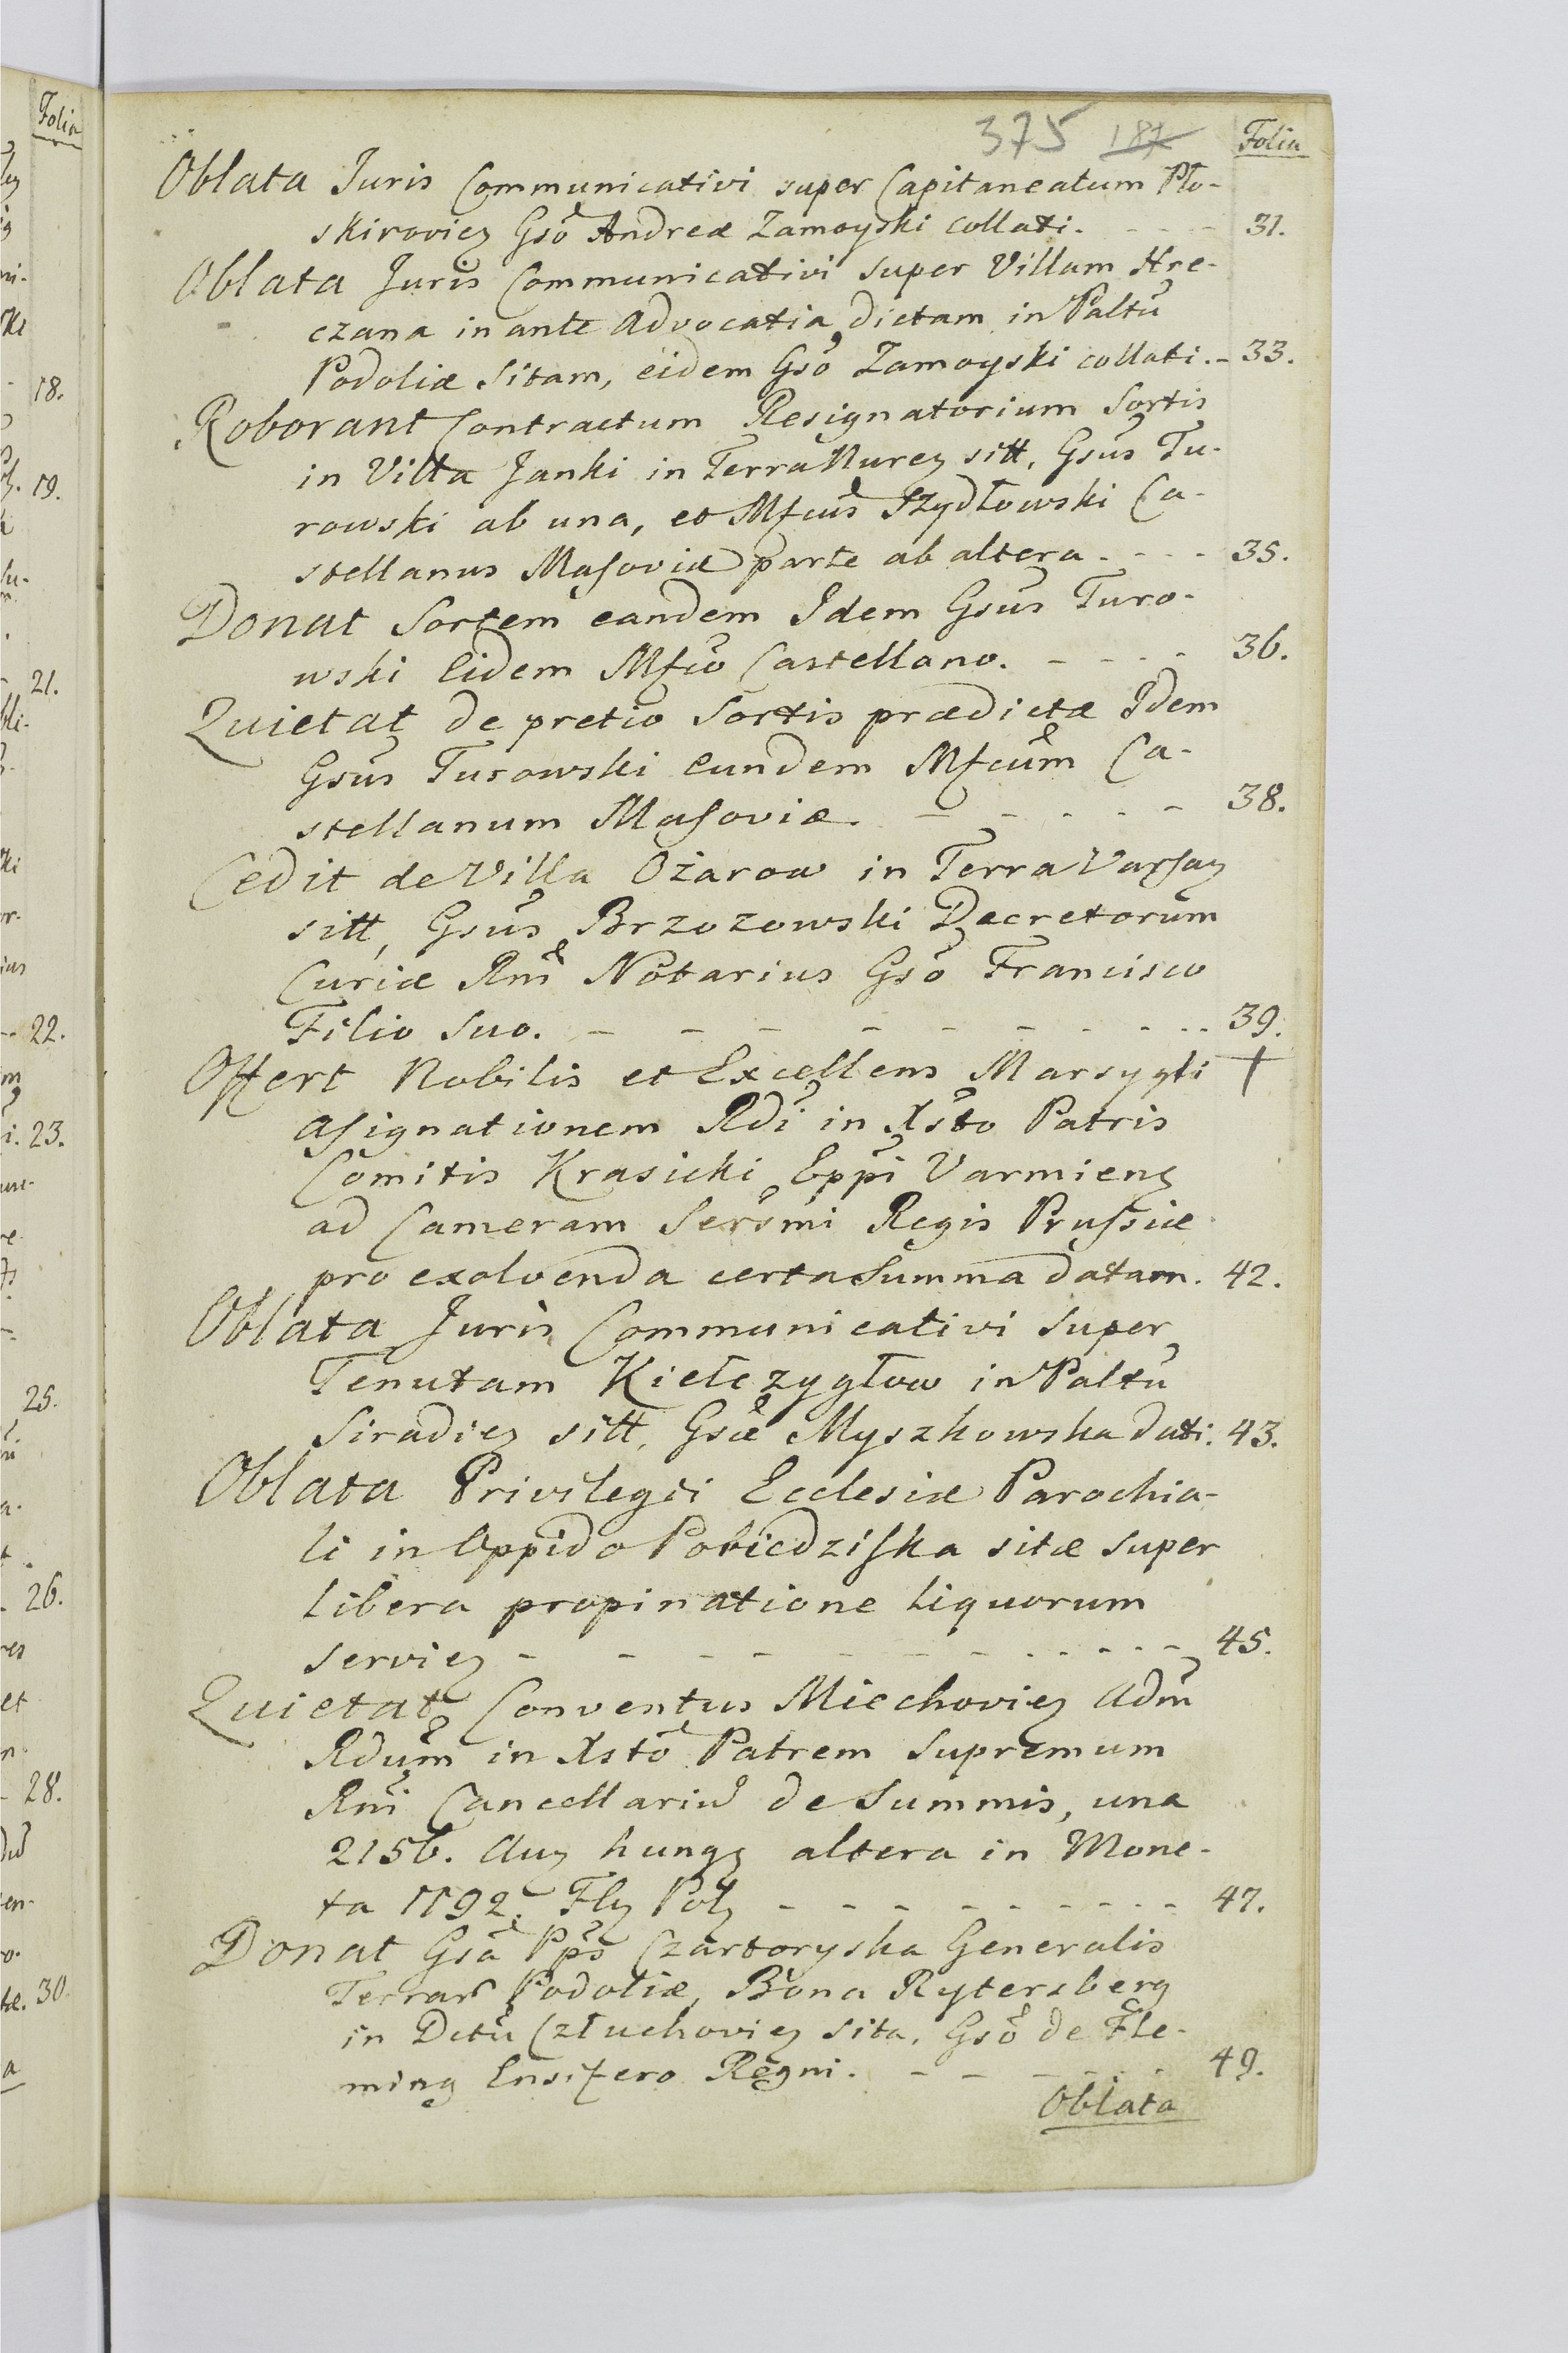 375 187 Folia
Oblata Juris Communicativi super Capitaneatum Pło-
skirovieȝ Gsô Andreæ Zamoyski collati. - - - - 31.
Oblata Juris Communicativi super Villam Hre-
czana in ante Advocatia dictam in Paltû
Podoliæ Sitam, eidem Gsô Zamoyski collati. - 33.
Roborant Contractum Resignatorium Sortis
in Villa Janki in Terra Nureȝ sitt, Gsûs Tu-
rowski ab una, et Mfcûs Szydłowski Ca-
stellanus Masoviæ parte ab altera - - - - 35.
Donat Sortem eandem Idem Gsûs Turo-
wski Eidem Mfcô Castellano. - - - - 36.
Quietat de pretio Sortis prædictæ Idem
Gsûs Turowski eundem Mfcûm Ca-
stellanum Masoviæ. - - - - - 38.
Cedit de Villa Ożarow in Terra Varsaȝ
sitt, Gsûs Brzozowski Decretorum
Curiæ Rnî Notarius Gsô Francisco
Filio Suo. - - - - - - - - - - 39.
Offert Nobilis et Excellens Marsygli +
Asignationem Rdî in Xsto Patris
Comitis Krasicki Eppî Varmienȝ
ad Cameram Sersmî Regis Prussiæ
pro exolvenda certa Summa datam. 42.
Oblata Juris Communicativi Super
Tenutam Kiełczygłow in Paltû
Siradieȝ sitt, Gsæ Myszkowska dati. 43.
Oblata Privilegii Ecclesiæ Parochia-
li in Oppido Pobiedziska sitæ super
libera propinatione liquorum
servieȝ - - - - - - - - - - - 45.
Quietat Conventus Miechovieȝ Adm̂
Rdûm in Xstô Patrem Supremum
Rnî Cancellariû de Summis, una
2156. Auȝ hungȝ altera in Mone-
ta 1792. Flȝ Polȝ - - - - - - - - - 47.
Donat Gsâ Ppŝ Czartoryska Generalis
Terrar̃ Podoliæ, Bona Rytersberg
in Dctû Człuchovieȝ sita, Gsô de Fle-
ming Ensifero Regni. - - - - - - 49.
Oblata
Folia
18.
19.
21.
22.
23.
25.
26.
28.
30.